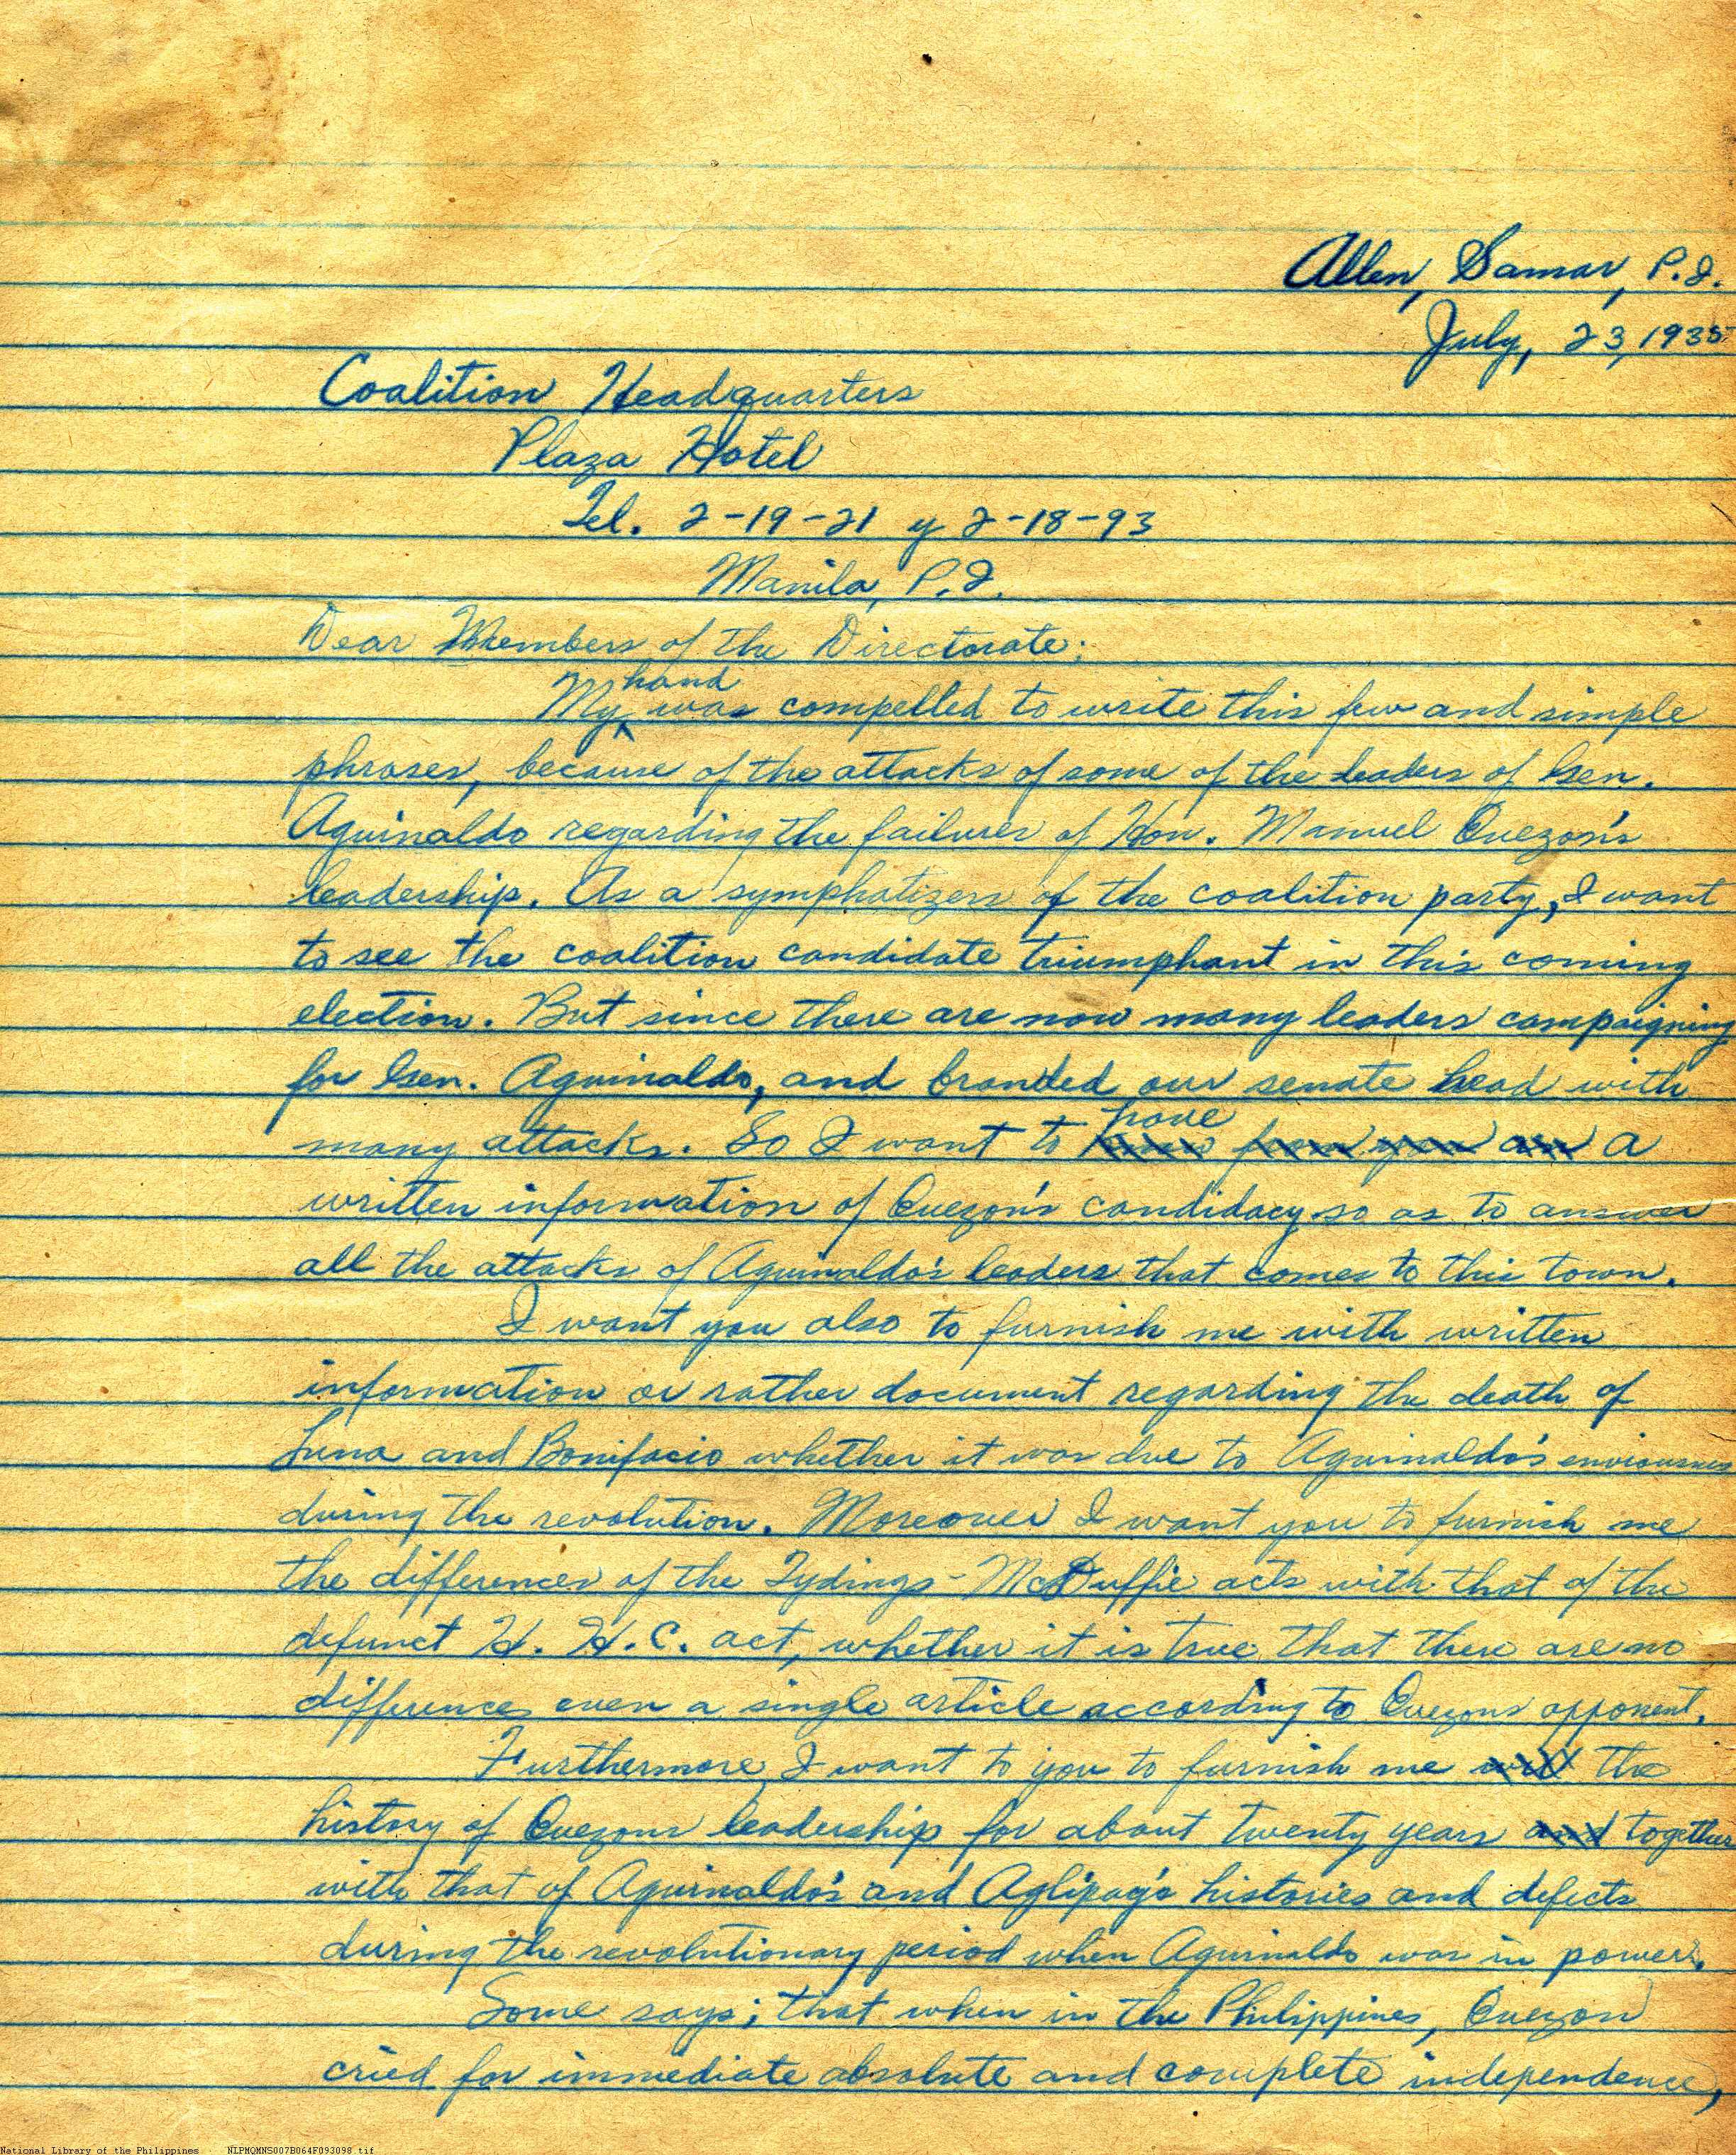 Allen, Samar, P.I.
July, 23, 1935
Coalition Headquarters
Plaza Hotel
Tel. 2-19-21 y 2-18-93
Manila, P.I.
Dear Members of the Directorate:
My hand was compelled to write this few and simple
phrases, because of the attacks of some of the leaders of Gen.
Aguinaldo regarding the failures of Hon. Manuel Quezon's
leadership. As a symphatizers of the coalition party, I want
to see the coalition candidate triumphant in this coming
election. But since there are now many leaders campaigning
for Gen. Aguinaldo, and branded our senate head with
many attacks. So I want to have from you an a
written information of Quezon's candidacy so as to answer
all the attacks of Aguinaldo's leaders that comes to this town.
I want you also to furnish me with written
information or rather document regarding the death of
Luna and Bonifacio whether it was due to Aguinaldo's enviousness
during the revolution. Moreover I want you to furnish me
the differences of the Tydings-McDuffie acts with that of the
defunct H. H. C. act, whether it is true that there are no
differences even a single article according to Quezons opponent.
Furthermore, I want to you to furnish me with the
history of Quezons leadership for about twenty years and together
with that of Aguinaldo's and Aglipay's histories and defects
during the revolutionary period when Aguinaldo was in power.
Some says; that when in the Philippines, Quezon
cried for immediate absolute and complete independence,
National Library of the Philippines NLPMQMNS007B064F093098.tif